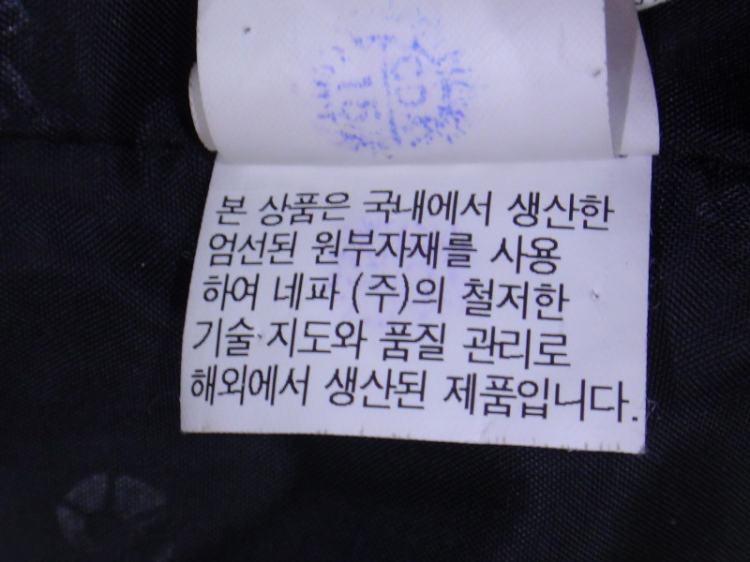 본 상품은 국내에서 생산한
엄선된 원부자재를 사용
하여 네파 (주)의 철저한
기술 지도와 품질 관리로
해외에서 생산된 제품입니다.